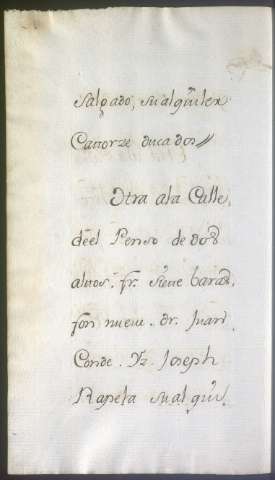 Salgado, su alquiler
Cattorze ducados//
Otra a la Calle
deel Penso de dos
altos. fr. siete baras,
fon nueve. dr. Juan
Conde. Yz. Joseph
Rapela su alqui.